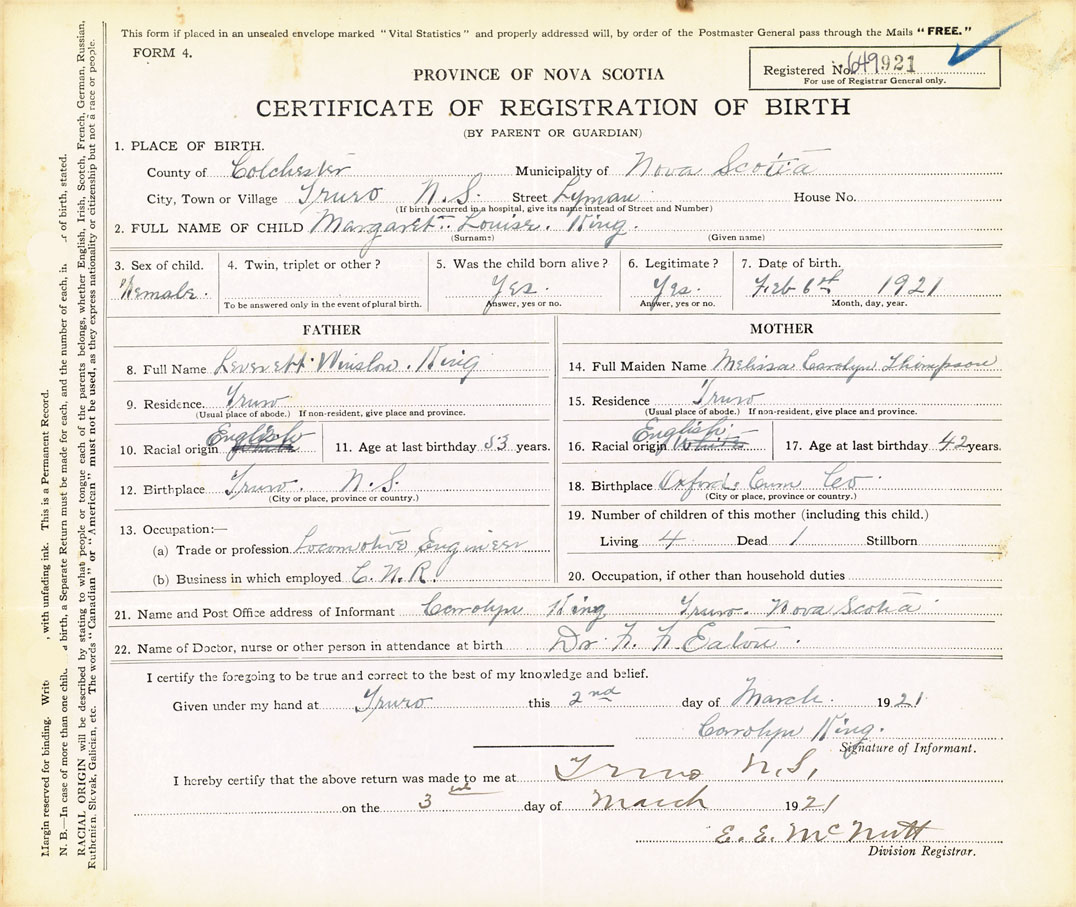 This form if placed in an unsealed envelope marked "Vital Statistics" and properly addressed will, by order of the Postmaster General pass through the Mails "FREE."
FORM 4.
Registered No. 649921
For use of Registrar General only.
PROVINCE OF NOVA SCOTIA
CERTIFICATE OF REGISTRATION OF BIRTH
(BY PARENT OR GUARDIAN)
1. PLACE OF BIRTH.
County of Colchester Municipality of Nova Scotia
City, Town or Village Truro N.S. Street Lyman House No.
(If birth occurred in a hospital, give its name instead of Street and Number)
2. FULL NAME OF CHILD Margaret Louise. King.
(Surname) (Given name)
3. Sex of child. 4. Twin, triplet or other? 5. Was the child born alive? 6. Legitimate? 7. Date of birth.
Female. Yes. Yes. Feb 6th 1921
To be answered only in the event of plural birth. Answer, yes or no. Answer, yes or no. Month, day, year.
FATHER
8. Full Name Leverett Winslow. King
9. Residence. Truro
(Usual place of abode.) If non-resident, give place and province.
10. Racial origin English 11. Age at last birthday 53 years.
12. Birthplace Truro. N.S.
(City or place, province or country.)
13. Occupation:—
(a) Trade or profession Locomotive Engineer
(b) Business in which employed C.N.R.
MOTHER
14. Full Maiden Name Melissa Carolyn Thompson
15. Residence Truro
(Usual place of abode.) If non-resident, give place and province.
16. Racial origin English. White 17. Age at last birthday 42 years.
18. Birthplace Oxford. Cum Co
(City or place, province or country.)
19. Number of children of this mother (including this child.)
Living 4 Dead 1 Stillborn
20. Occupation, if other than household duties
21. Name and Post Office address of Informant Carolyn King Truro. Nova Scotia
22. Name of Doctor, nurse or other person in attendance at birth Dr. F. F. Eaton.
I certify the foregoing to be true and correct to the best of my knowledge and belief.
Given under my hand at Truro this 2nd day of March. 1921
Carolyn King.
Signature of Informant.
I hereby certify that the above return was made to me at Truro N.S,
on the 3 day of March 1921
E. E. McNutt
Division Registrar.
Margin reserved for binding. Writ , with unfading ink. This is a Permanent Record.
N. B.—In case of more than one chil birth, a Separate Return must be made for each, and the number of each, in of birth, stated.
RACIAL ORIGIN will be described by stating to what people or tongue each of the parents belongs, whether English, Irish, Scotch, French, German, Russian,
Ruthenian, Slovak, Galician, etc. The words "Canadian" or "American" must not be used, as they express nationality or citizenship but not a race or people.